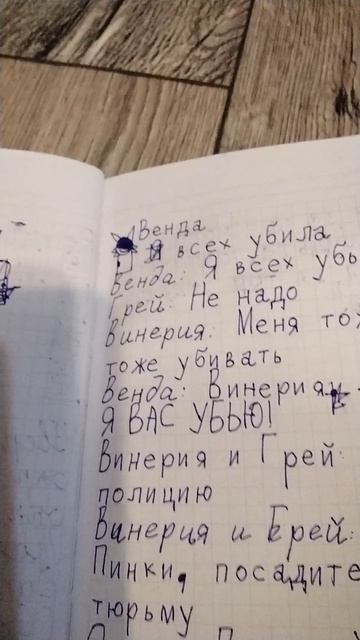 Венда
Я всех убила
Венда: Я всех убь
Грей: Не надо
Винерия: Меня то
тоже убивать
Венда: Винерия
Я ВАС УБЬЮ!
Винерия и Грей:
полицию
Винерия и Грей:
Пинки, посадите
тюрьму